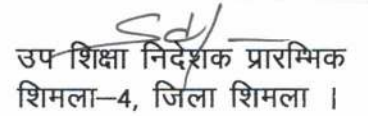 Sd/-
उप शिक्षा निदेशक प्रारम्भिक
शिमला–4, जिला शिमला ।